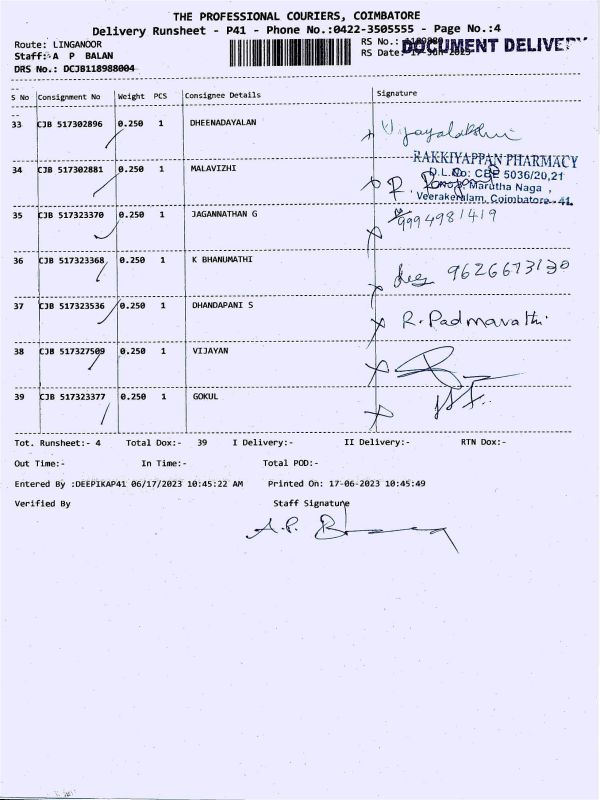 THE PROFESSIONAL COURIERS, COIMBATORE
Delivery Runsheet - P41 - Phone No.:0422-3505555 - Page No.:4
Route: LINGANOOR RS No.: DOCUMENT DELIVERY
Staff: A P BALAN RS Date: 17-Jun-2023
DRS No.: DCJB118988004
S No Consignment No Weight PCS Consignee Details Signature
33 CJB 517302896 0.250 1 DHEENADAYALAN Vijayalakshmi
RAKKIYAPPAN PHARMACY
34 CJB 517302881 0.250 1 MALAVIZHI D.L.No: CBE 5036/20,21
Marutha Naga ,
Veerakeralam, Coimbatore - 41.
35 CJB 517323370 0.250 1 JAGANNATHAN G 9994981419
36 CJB 517323368 0.250 1 K BHANUMATHI 9626673130
37 CJB 517323536 0.250 1 DHANDAPANI S R. Padmavathi
38 CJB 517327509 0.250 1 VIJAYAN
39 CJB 517323377 0.250 1 GOKUL
Tot. Runsheet:- 4 Total Dox:- 39 I Delivery:- II Delivery:- RTN Dox:-
Out Time:- In Time:- Total POD:-
Entered By :DEEPIKAP41 06/17/2023 10:45:22 AM Printed On: 17-06-2023 10:45:49
Verified By Staff Signature
A.P.